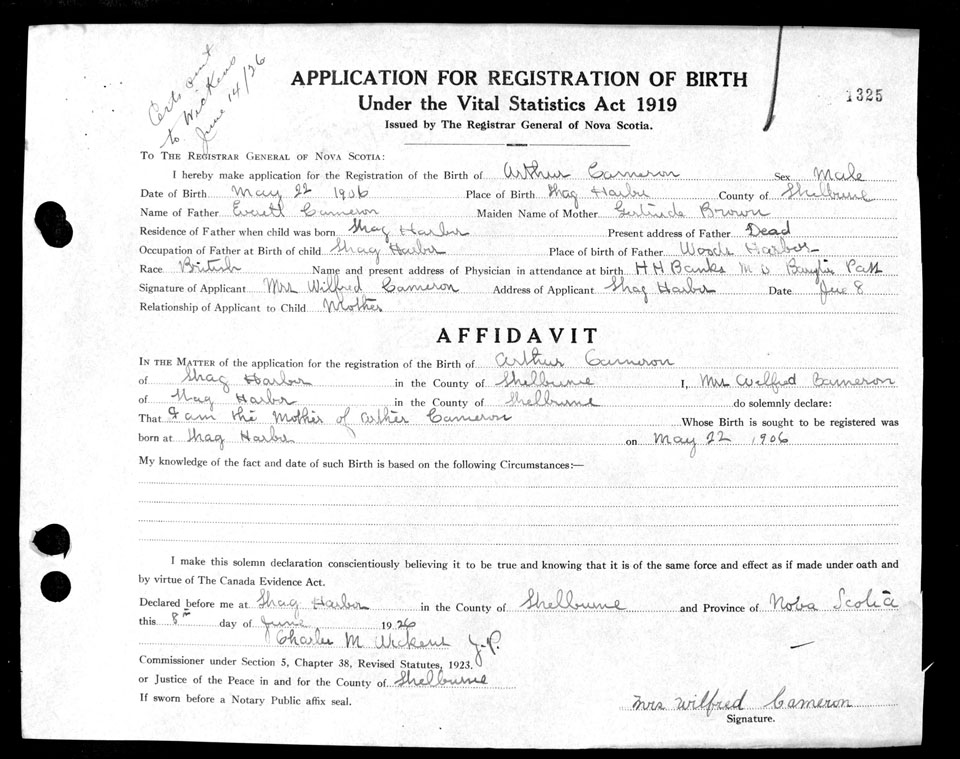 Certs sent
to Wickens
June 14/26
APPLICATION FOR REGISTRATION OF BIRTH
Under the Vital Statistics Act 1919
1325
Issued by The Registrar General of Nova Scotia.
TO THE REGISTRAR GENERAL OF NOVA SCOTIA:
I hereby make application for the Registration of the Birth of Arthur Cameron Sex Male
Date of Birth May 22 1906 Place of Birth Shag Harbor County of Shelburne
Name of Father Everett Cameron Maiden Name of Mother Gertrude Brown
Residence of Father when child was born Shag Harbor Present address of Father Dead
Occupation of Father at Birth of child Shag Harbor Place of birth of Father Woods Harbor
Race British Name and present address of Physician in attendance at birth H H Banks M D Pass
Signature of Applicant Mrs Wilfred Cameron Address of Applicant Shag Harbor Date June 8
Relationship of Applicant to Child Mother
AFFIDAVIT
IN THE MATTER of the application for the registration of the Birth of Arthur Cameron
of Shag Harbor in the County of Shelburne I, Mrs Wilfred Cameron
of Shag Harbor in the County of Shelburne do solemnly declare:
That I am the Mother of Arther Cameron Whose Birth is sought to be registered was
born at Shag Harbor on May 22 1906
My knowledge of the fact and date of such Birth is based on the following Circumstances:—
I make this solemn declaration conscientiously believing it to be true and knowing that it is of the same force and effect as if made under oath and
by virtue of The Canada Evidence Act.
Declared before me at Shag Harbor in the County of Shelburne and Province of Nova Scotia
this 8th day of June 1926
Charles M Wickens J.P.
Commissioner under Section 5, Chapter 38, Revised Statutes, 1923.
or Justice of the Peace in and for the County of Shelburne
If sworn before a Notary Public affix seal.
Mrs Wilfred Cameron
Signature.